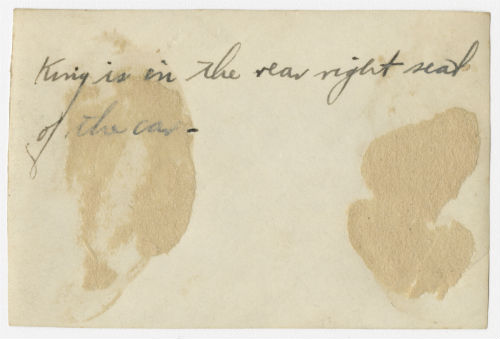 King is in the rear right seat
of the car-